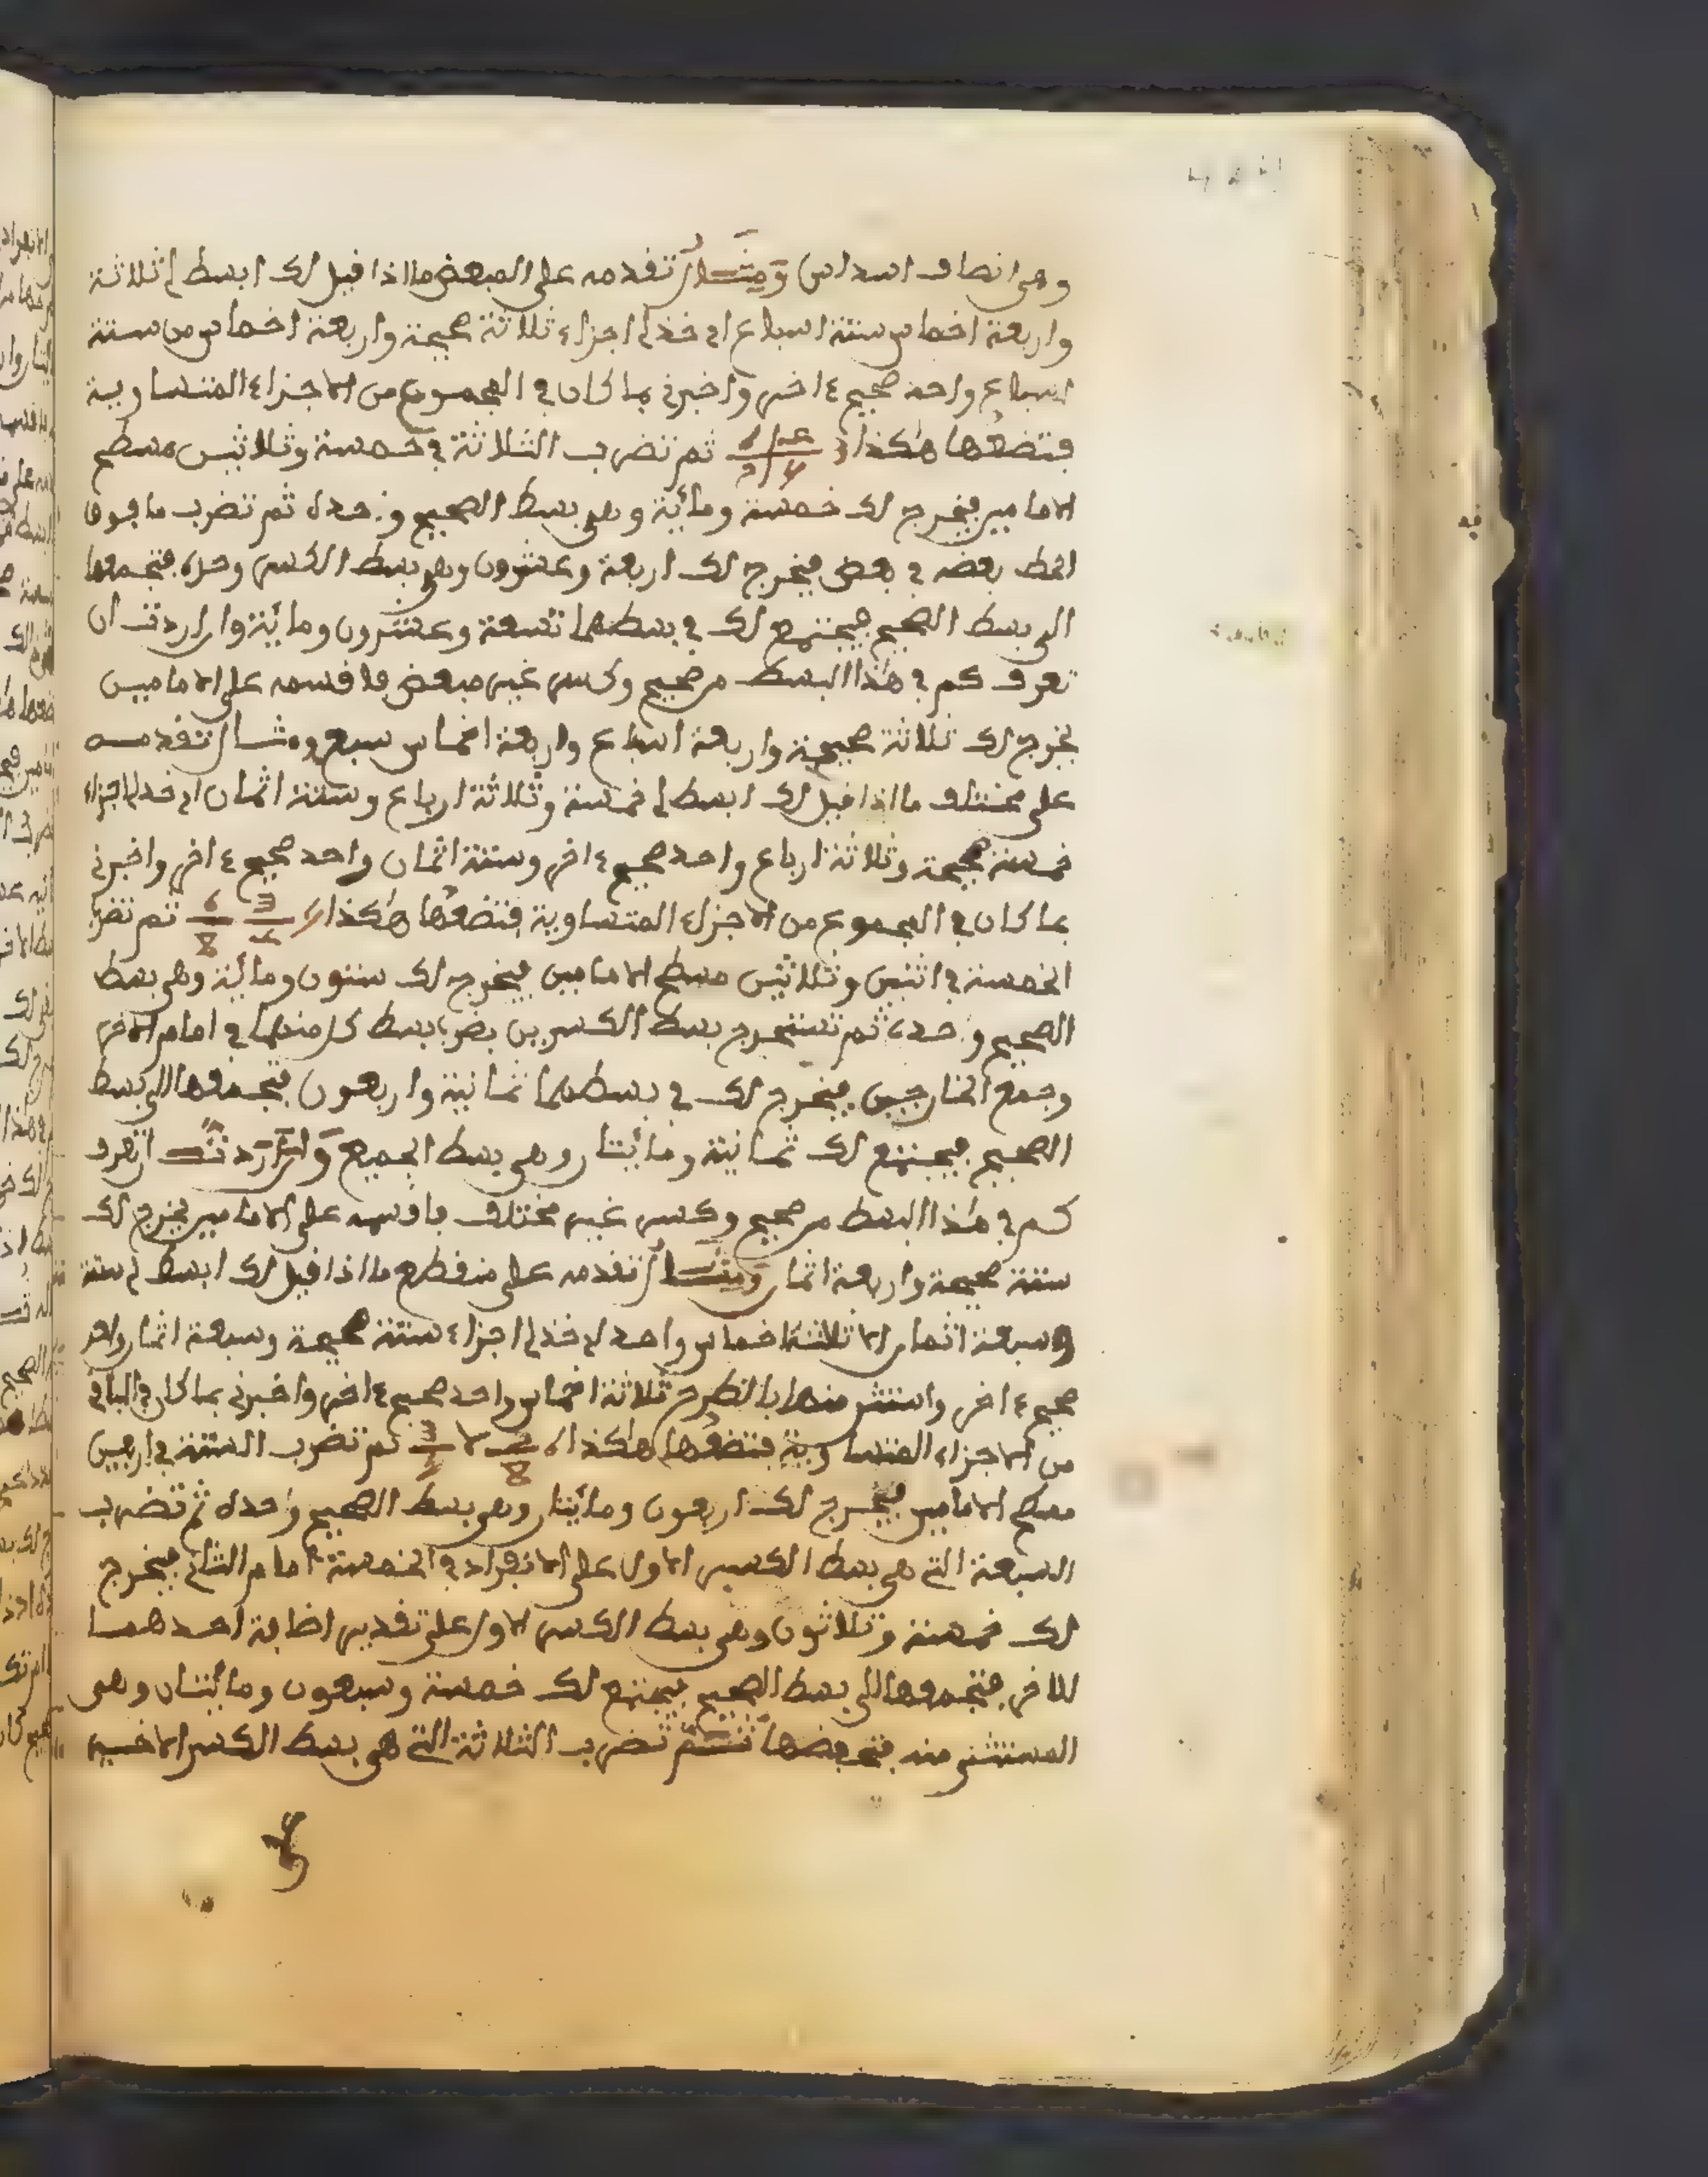 وهي انصاف اسداس ومثال تقدمه على المبعض ما اذا قيل لك ابسط لي ثلاثة
واربعة اخماس ستة اسباع اي خذ لي اجزاء ثلاثة صحيحة واربعة اخماس من ستة
اسباع واحد صحيح ءاخر واخبرني بما كان في المجموع من الاجزاء المتساوية
فتضعها هكذا ثم تضرب الثلاثة في خمسة وثلاثين مسطح
الامامين فيخرج لك خمسة ومائة وهي بسط الصحيح وحده ثم تضرب ما فوق
الخط بعضه في بعض فيخرج لك اربعة وعشرون وهي بسط الكسر وحده فتجمعها
الى بسط الصحيح فيجتمع لك في بسطهما تسعة وعشرون ومائة وان اردت ان
تعرف كم في هذا البسط من صحيح وكسر غير مبعض فاقسمه على الامامين
يخرج لك ثلاثة صحيحة واربعة اسباع واربعة اخماس سبع ومثال تقدمه
على مختلف ما اذا قيل لك ابسط لي خمسة وثلاثة ارباع وستة اثمان اي خذ لي اجزاء
خمسة صحيحة وثلاثة ارباع واحد صحيح ءاخر وستة اثمان واحد صحيح ءاخر واخبرني
بما كان في المجموع من الاجزاء المتساوية فتضعها هكذا ثم تضرب
الخمسة في اثنين وثلاثين مسطح الامامين فيخرج لك ستون ومائة وهي بسط
الصحيح وحده ثم تستخرج بسط الكسرين بضرب بسط كل منهما في امام الاخر
وجمع الخارجين فيخرج لك في بسطهما ثمانية واربعون فتجمعها الى بسط
الصحيح فيجتمع لك ثمانية ومائتان وهي بسط الجميع وان اردت ان تعرف
كم في هذا البسط من صحيح وكسر غير مختلف فاقسمه على الامامين يخرج لك
ستة صحيحة واربعة اثمان ومثال تقدمه على منقطع ما اذا قيل لك ابسط لي ستة
وسبعة اثمان الا ثلاثة اخماس واحد اي خذ لي اجزاء ستة صحيحة وسبعة اثمان واحد
صحيح ءاخر واستثن منها بالطرح ثلاثة اخماس واحد صحيح ءاخر واخبرني بما كان في الباقي
من الاجزاء المتساوية فتضعها هكذا ثم تضرب الستة في اربعين
مسطح الامامين فيخرج لك اربعون ومائتان وهي بسط الصحيح وحده ثم تضرب
السبعة التي هي بسط الكسر الاول على الانفراد في الخمسة امام الثاني فيخرج
لك خمسة وثلاثون وهي بسط الكسر الاول على تقدير اضافة احدهما
للاخر فتجمعها الى بسط الصحيح فيجتمع لك خمسة وسبعون ومائتان وهي
المستثنى منه فتحفضها ثم تضرب الثلاثة التي هي بسط الكسر الاخير